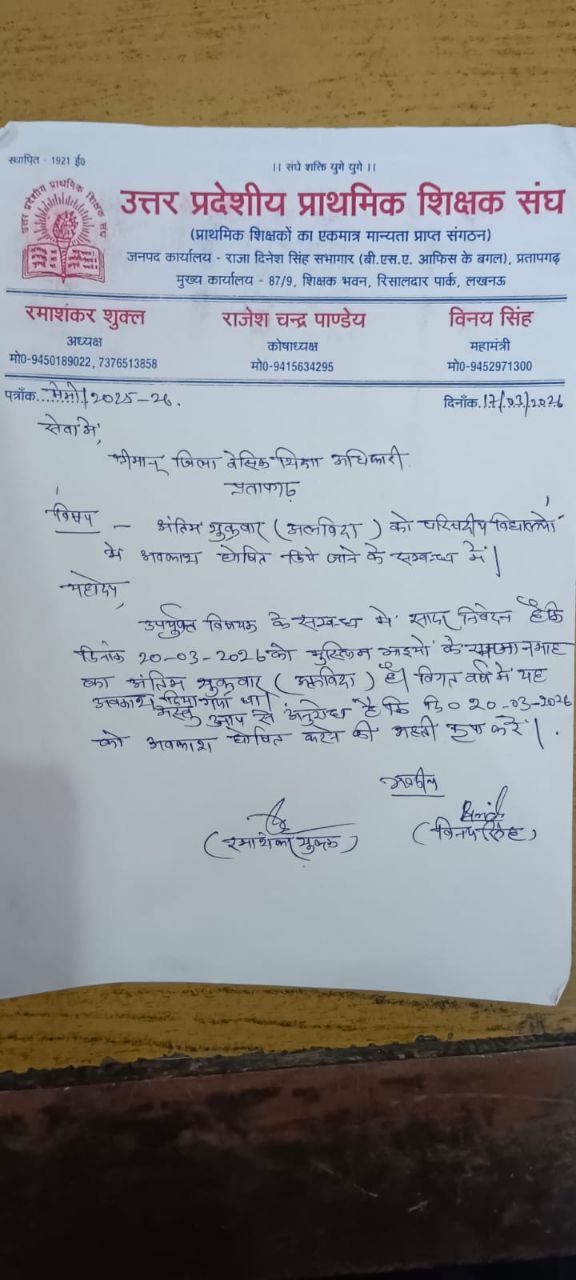 स्थापित - 1921 ई0
।। संघे शक्ति युगे युगे ।।
उत्तर प्रदेशीय प्राथमिक शिक्षक संघ
उत्तर प्रदेशीय प्राथमिक शिक्षक संघ
(प्राथमिक शिक्षकों का एकमात्र मान्यता प्राप्त संगठन)
जनपद कार्यालय - राजा दिनेश सिंह सभागार (बी.एस.ए. आफिस के बगल), प्रतापगढ़
मुख्य कार्यालय - 87/9, शिक्षक भवन, रिसालदार पार्क, लखनऊ
रमाशंकर शुक्ल राजेश चन्द्र पाण्डेय विनय सिंह
अध्यक्ष कोषाध्यक्ष महामंत्री
मो0-9450189022, 7376513858 मो0-9415634295 मो0-9452971300
पत्राँक....मेमो/2025-26. दिनाँक.17/03/2026
सेवा में,
श्रीमान् जिला बेसिक शिक्षा अधिकारी
प्रतापगढ़
विषय - अंतिम शुक्रवार (अलविदा) को परिषदीय विद्यालयों
में अवकाश घोषित किये जाने के सम्बन्ध में।
महोदय,
उपर्युक्त विषयक के सम्बन्ध में सादर निवेदन है कि
दिनांक 20-03-2026 को मुस्लिम भाइयों के माह
का अंतिम शुक्रवार (अलविदा) है। विगत वर्ष में यह
अवकाश दिया गया था।
अस्तु आप से अनुरोध है कि दि0 20-03-2026
को अवकाश घोषित करने की महती कृपा करें।
भवदीय
(रमाशंकर शुक्ल) (विनय सिंह)